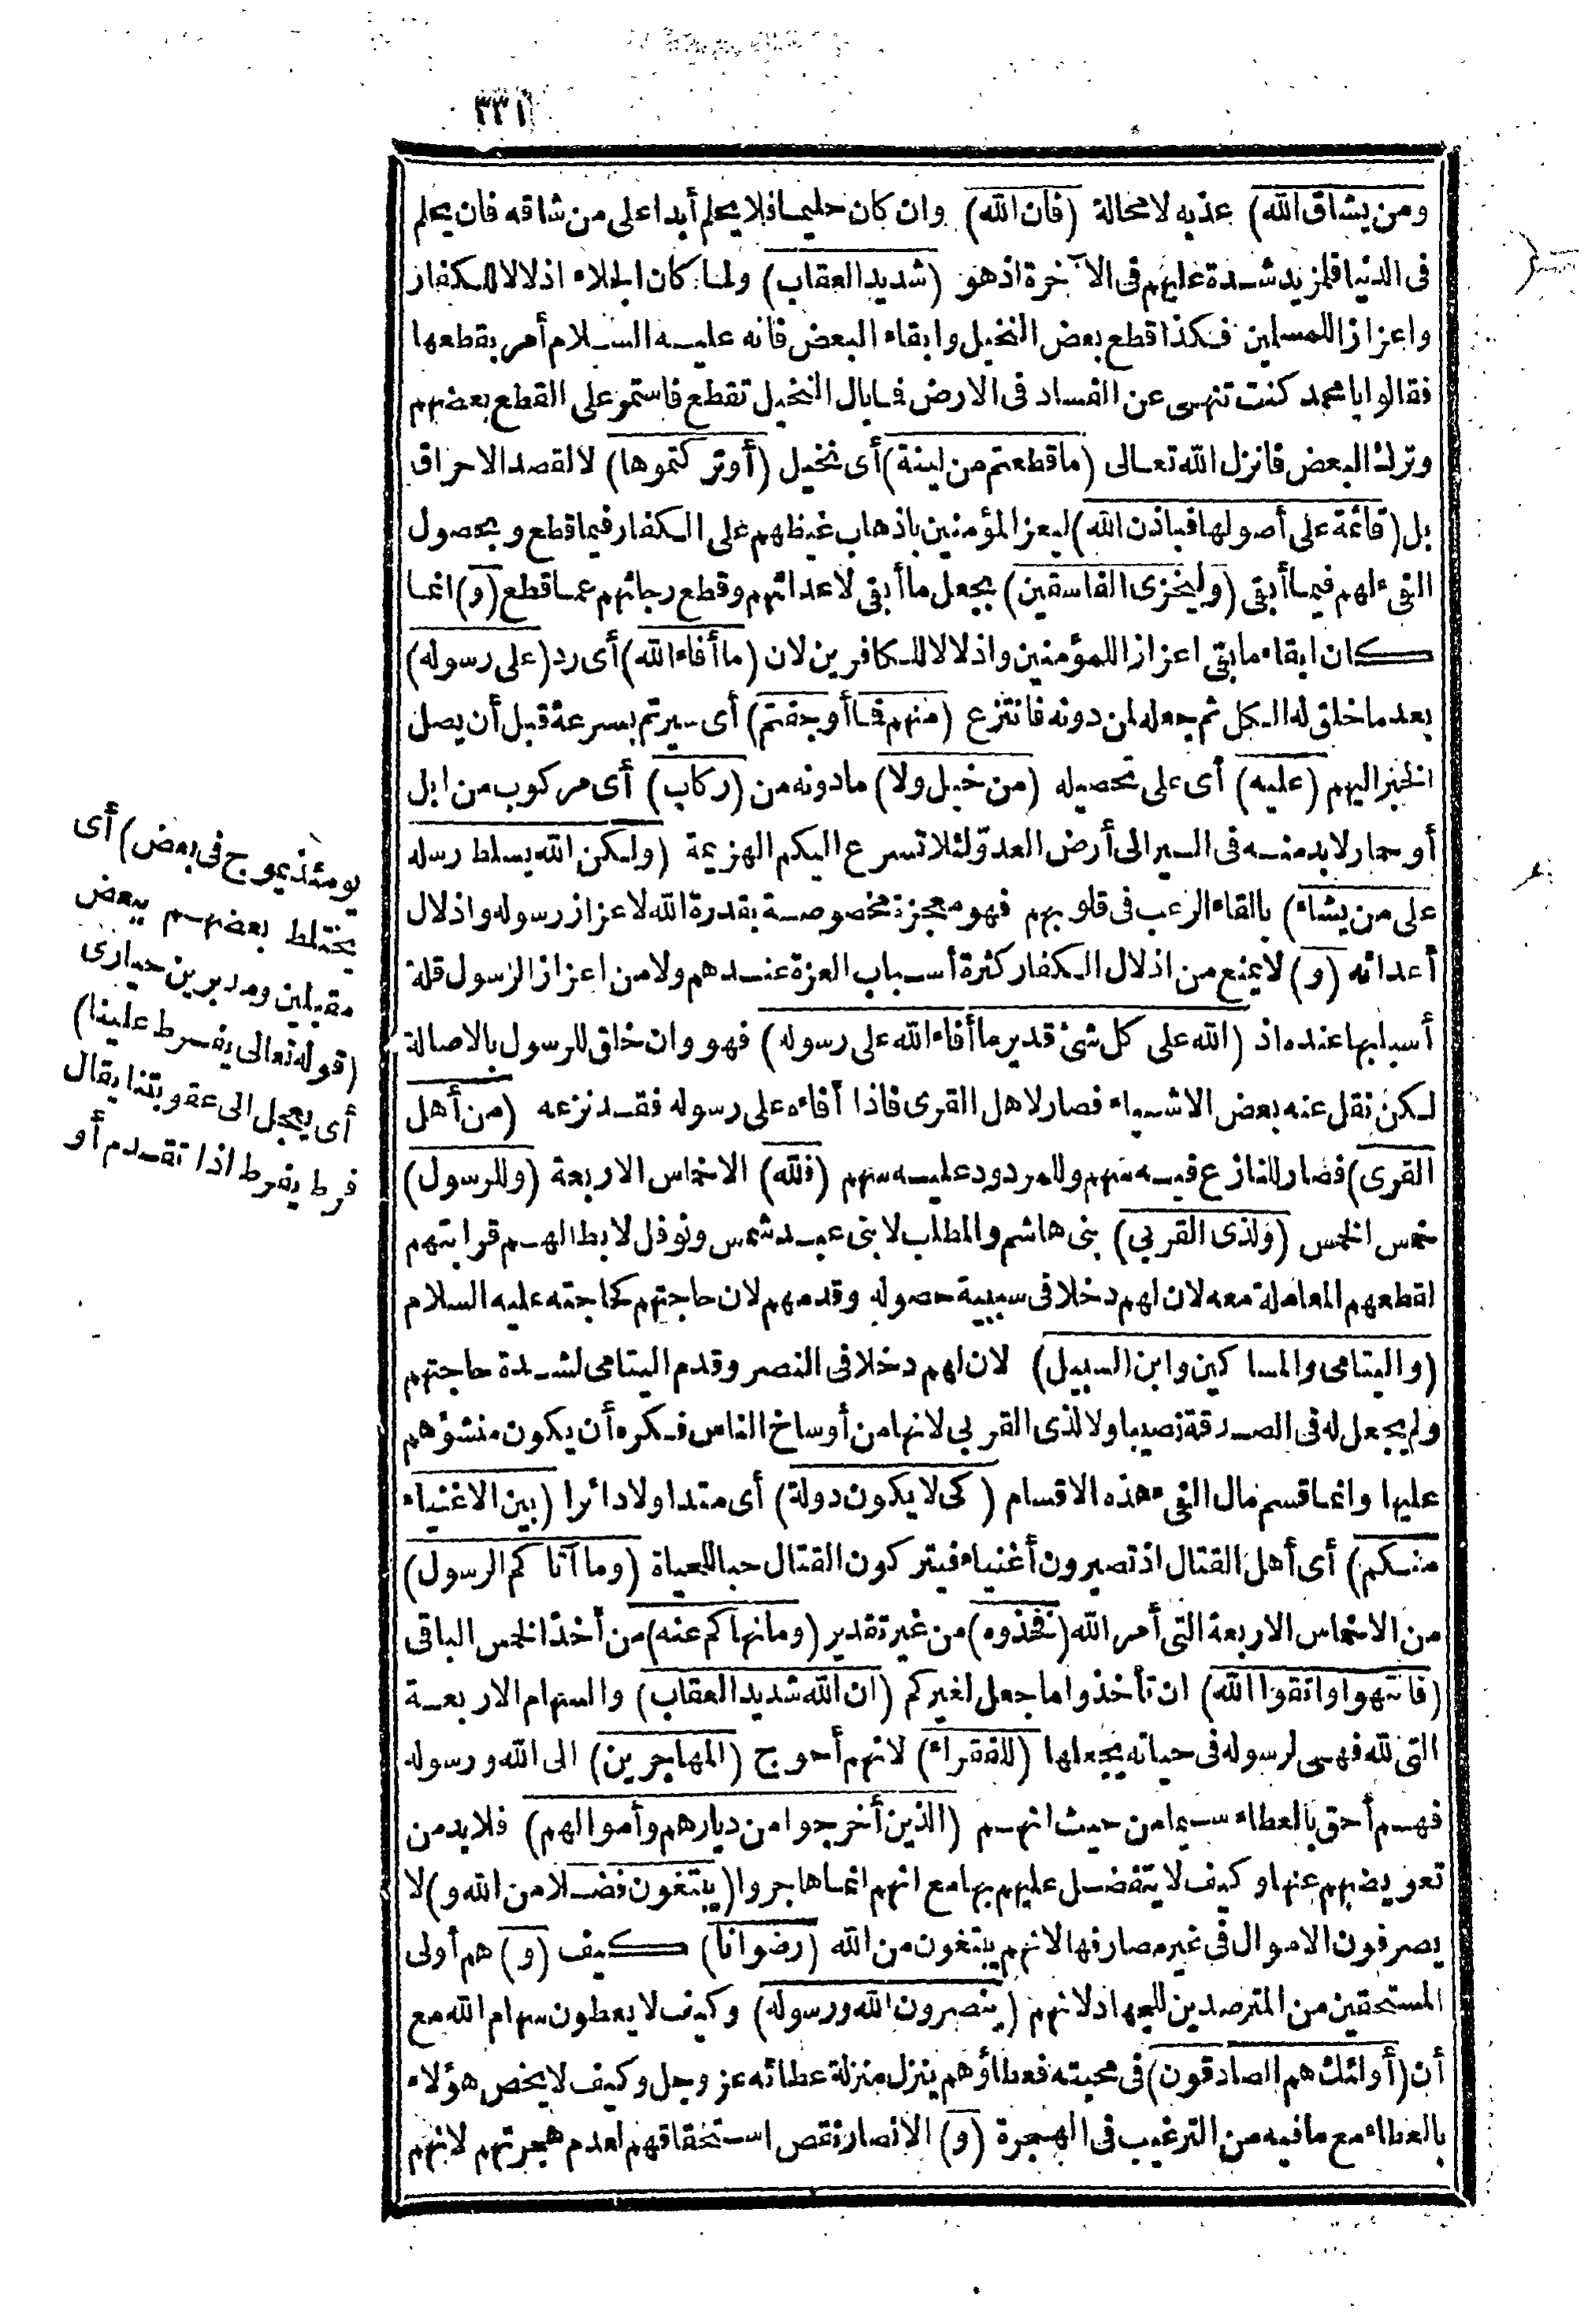 ٣٣١
ومن يشاق الله) عذبه لا محالة (فان الله) وان كان حليما فلا يحلم أبدا على من شاقه فان يحلم
فى الدنيا فلمزيد شدة عليهم فى الآخرة اذ هو (شديد العقاب) ولما كان الجلاء اذلالا للكفار
واعزازا للمسلمين فكذا قطع بعض النخيل وابقاء البعض فانه عليه السلام أمر بقطعها
فقالوا يا محمد كنت تنهى عن الفساد فى الارض فما بال النخيل تقطع فاستمر على القطع بعضهم
وترك البعض فانزل الله تعالى (ما قطعتم من لينة) أى نخيل (أو تركتموها) لا لقصد الاحراق
بل (قائمة على أصولها فباذن الله) ليعز المؤمنين باذهاب غيظهم على الكفار فيما قطع وبحصول
الفىء لهم فيما أبقى (وليخزى الفاسقين) بجعل ما أبقى لاعدائهم وقطع رجائهم عما قطع (و) انما
كان ابقاء ما بقى اعزازا للمؤمنين واذلالا للكافرين لان (ما أفاء الله) أى رد (على رسوله)
بعد ما خلق له الكل ثم جعله لمن دونه فانتزع (منهم فما أوجفتم) أى سيرتم بسرعة قبل أن يصل
الخبر اليهم (عليه) أى على تحصيله (من خيل ولا) مادونه من (ركاب) أى مركوب من ابل
أو حمار لابد منه فى السير الى أرض العدوّ لئلا تسرع اليكم الهزيمة (ولكن الله يسلط رسله
على من يشاء) بالقاء الرعب فى قلوبهم فهو معجزة مخصوصة بقدرة الله لاعزاز رسوله واذلال
أعدائه (و) لا يمنع من اذلال الكفار كثرة أسباب العزة عندهم ولا من اعزاز الرسول قلة
أسبابها عنده اذ (الله على كل شئ قدير ما أفاء الله على رسوله) فهو وان خلق للرسول بالاصالة
لكن نقل عنه بعض الاشياء فصار لاهل القرى فاذا أفاءه على رسوله فقد نزعه (من أهل
القرى) فصار للنازع فيه سهم وللمردود عليه سهم (فلله) الاخماس الاربعة (وللرسول)
خمس الخمس (ولذى القربى) بنى هاشم والمطلب لا بنى عبد شمس ونوفل لابطالهم قرابتهم
لقطعهم المعاملة معه لان لهم دخلا فى سببية حصوله وقدمهم لان حاجتهم كحاجته عليه السلام
(واليتامى والمساكين وابن السبيل) لان لهم دخلا فى النصر وقدم اليتامى لشدة حاجتهم
ولم يجعل له فى الصدقة نصيبا ولا لذى القربى لانها من أوساخ الناس فكره أن يكون منشؤهم
عليها وانما قسم مال الفىء هذه الاقسام (كى لا يكون دولة) أى متداولا دائرا (بين الاغنياء
منكم) أى أهل القتال اذ تصيرون أغنياء فيتركون القتال حبا للحياة (وما آتاكم الرسول)
من الاخماس الاربعة التى أمر الله (فخذوه) من غير تقدير (وما نهاكم عنه) من أخذ الخمس الباقى
(فانتهوا واتقوا الله) ان تأخذوا ما جعل لغيركم (ان الله شديد العقاب) والسهام الاربعة
التى لله فهى لرسوله فى حياته يجعلها (للفقراء) لانهم أحوج (المهاجرين) الى الله ورسوله
فهم أحق بالعطاء سيما من حيث انهم (الذين أخرجوا من ديارهم وأموالهم) فلابد من
تعويضهم عنها وكيف لا يتفضل عليهم بها مع انهم انما هاجروا (يبتغون فضلا من الله و) لا
يصرفون الاموال فى غير مصارفها لانهم يبتغون من الله (رضوانا) كيف (و) هم أولى
المستحقين من المترصدين للجهاد لانهم (ينصرون الله ورسوله) وكيف لا يعطون سهام الله مع
أن (أولئك هم الصادقون) فى محبته فعطاؤهم ينزل منزلة عطائه عز وجل وكيف لا يخص هؤلاء
بالعطاء مع ما فيه من الترغيب فى الهجرة (و) الانصار نقص استحقاقهم لعدم هجرتهم لانهم
يومئذ يموج فى بعض) أى
يختلط بعضهم ببعض
مقبلين ومدبرين حيارى
(قوله تعالى يفرط علينا)
أى يعجل الى عقوبتنا يقال
فرط يفرط اذا تقدم أو